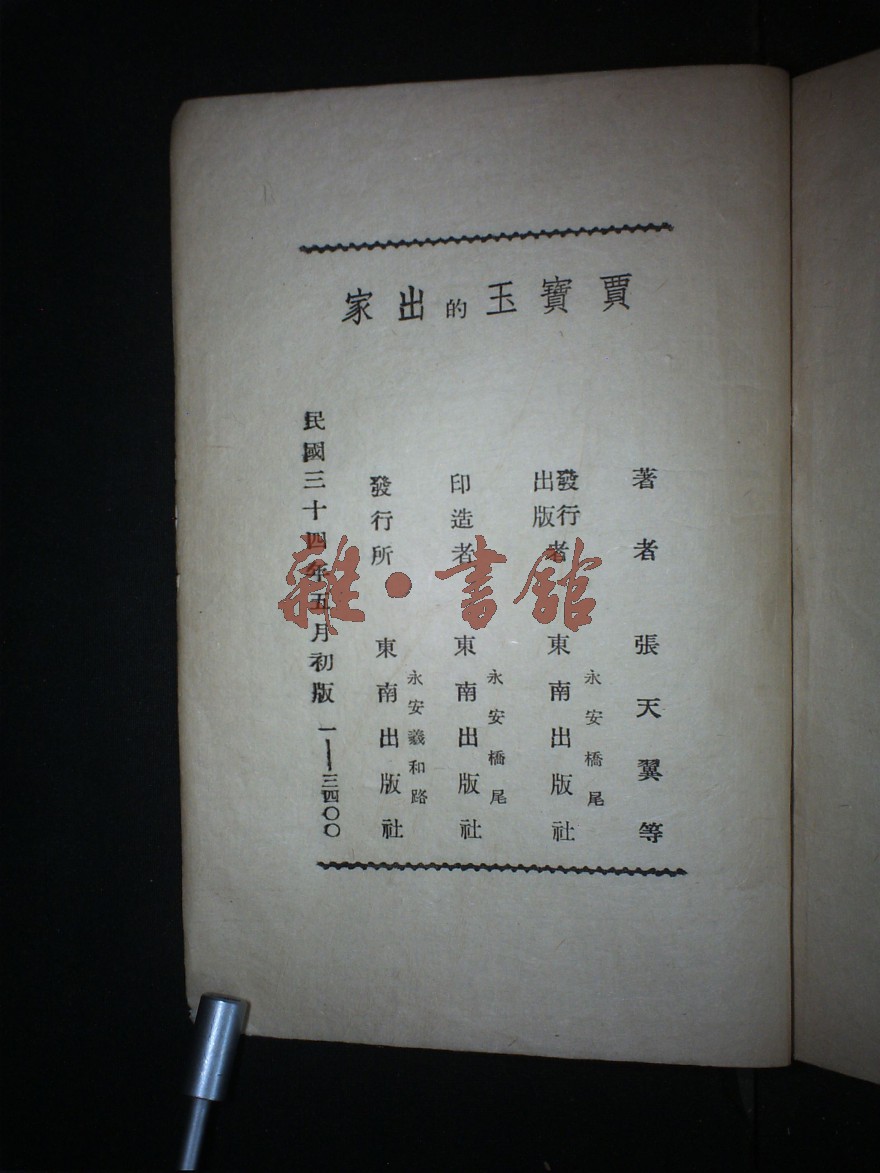 賈寶玉的出家
著者 張天翼等
出版發行者 永安橋尾 東南出版社
印造者 永安橋尾 東南出版社
發行所 永安羲和路 東南出版社
民國三十四年五月初版 一——三四〇〇
雜·書館